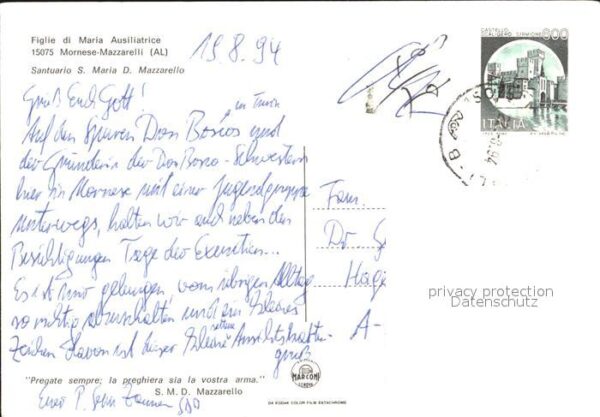 Figlie di Maria Ausiliatrice
15075 Mornese-Mazzarelli (AL)
Santuario S. Maria D. Mazzarello
19.8.94
CASTELLO SCALIGERO SIRMIONE 600
ITALIA
Grüß Euch Gott!
in Turin
Auf den Spuren Don Boscos und
der Gründerin der Don Bosco-Schwestern
hier in Mornese mit einer Jugendgruppe
unterwegs, halten wir auch neben den
Besichtigungen Tage der Exerzitien...
Es ist mir gelungen, vom übrigen Alltag
so richtig abzuschalten und ein kleines
Zeichen davon ist dieser kleine Ansichtskarten
gruß
Fam.
Dr. G
Hage
A-
privacy protection
Datenschutz
"Pregate sempre; la preghiera sia la vostra arma."
S. M. D. Mazzarello
Euer P.
SDB
MARCONI
GENOVA
DA KODAK COLOR FILM EKTACHROME